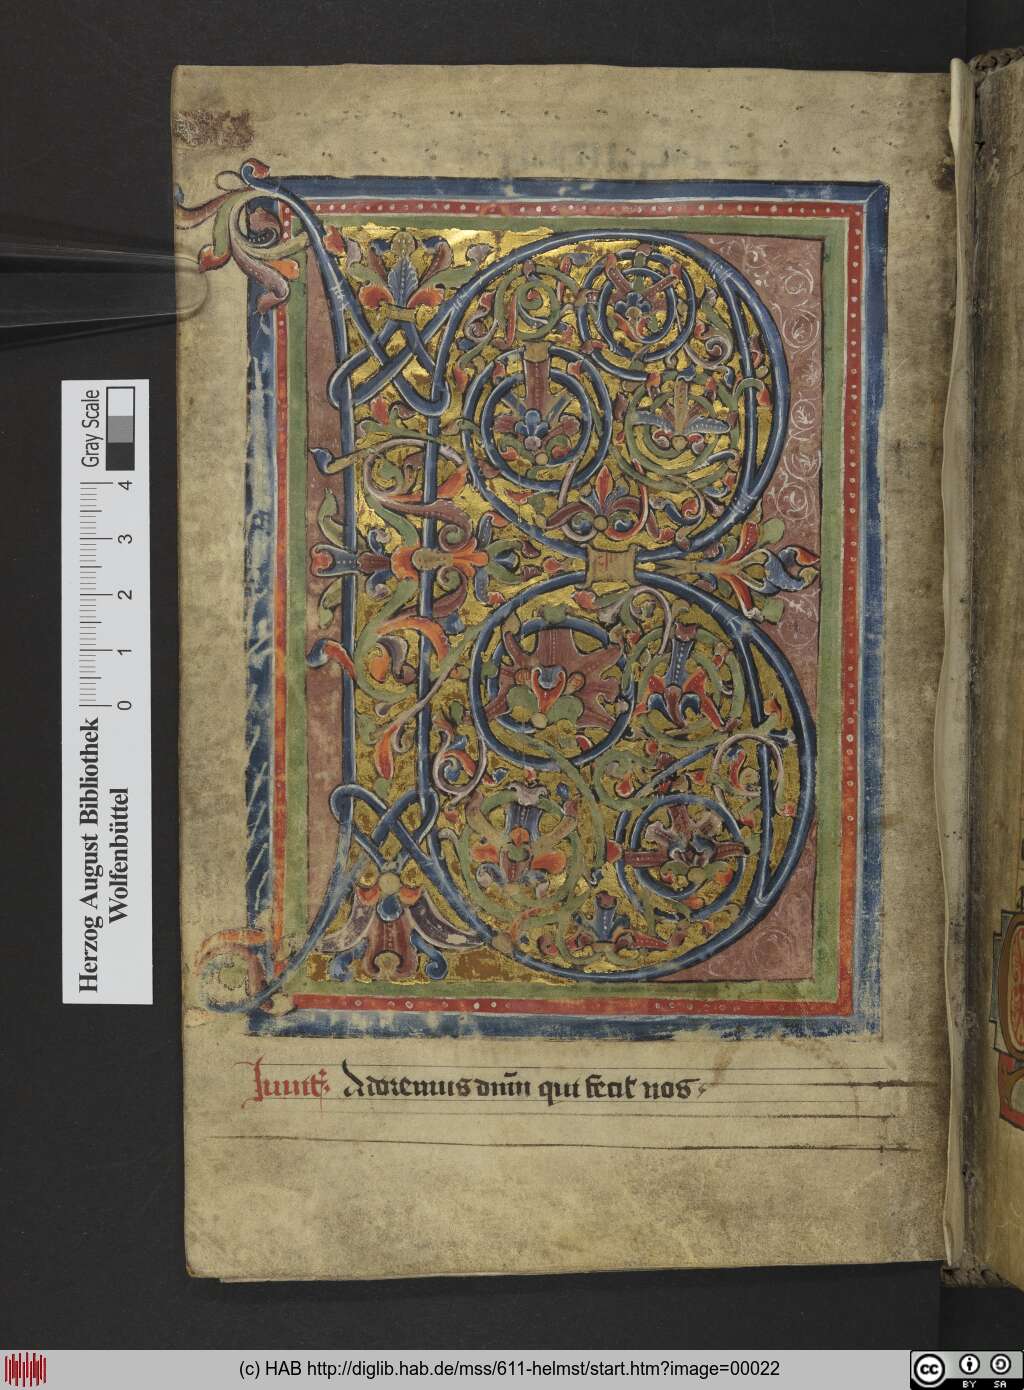 B
Inuit Adoremus dnm̄ qui fecit nos
Herzog August Bibliothek
Wolfenbüttel
0 1 2 3 4
Gray Scale
(c) HAB http://diglib.hab.de/mss/611-helmst/start.htm?image=00022
cc BY SA